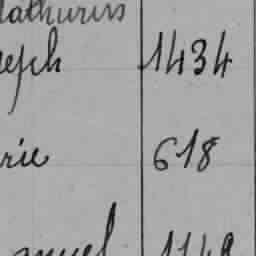 lathurin
seph 1434
rie 618
anuel 1149